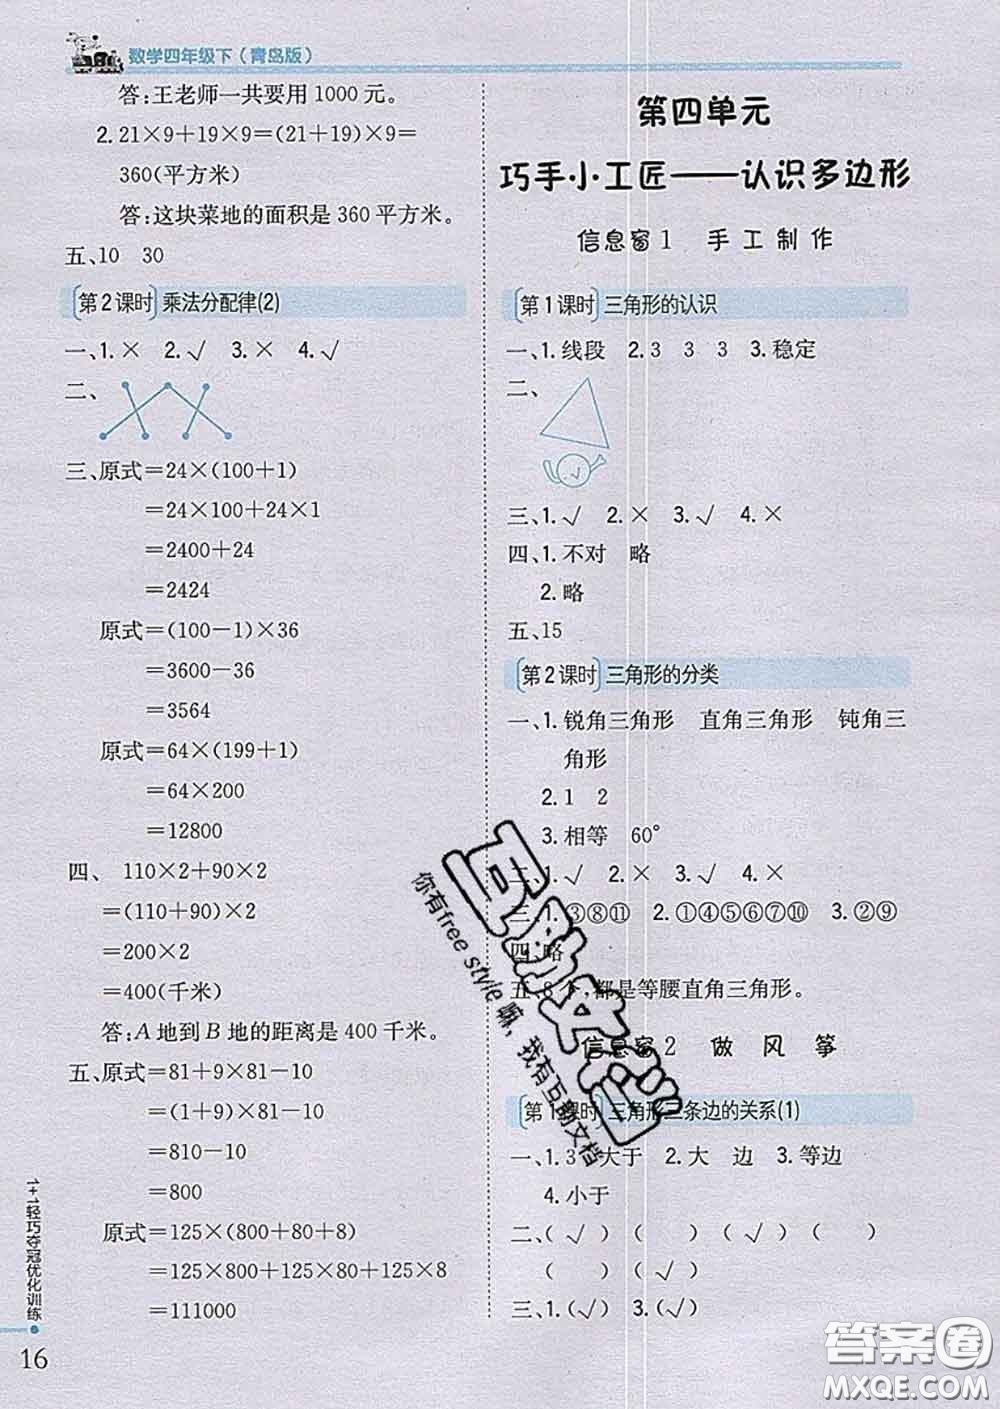 数学四年级下（青岛版）
答:王老师一共要用1000元。
2.21×9+19×9=(21+19)×9=
360(平方米)
答:这块菜地的面积是360平方米。
五、10 30
第2课时 乘法分配律(2)
一、1.× 2.√ 3.× 4.√
二、
三、原式=24×(100+1)
=24×100+24×1
=2400+24
=2424
原式=(100-1)×36
=3600-36
=3564
原式=64×(199+1)
=64×200
=12800
四、 110×2+90×2
=(110+90)×2
=200×2
=400(千米)
答:A地到B地的距离是400千米。
五、原式=81+9×81-10
=(1+9)×81-10
=810-10
=800
原式=125×(800+80+8)
=125×800+125×80+125×8
=111000
1+1轻巧夺冠优化训练
16
第四单元
巧手小工匠——认识多边形
信息窗1 手工制作
第1课时 三角形的认识
一、1.线段 2.3 3 3 3.稳定
二、
√
三、1.√ 2.× 3.√ 4.×
四、1.不对 略
2.略
五、15
第2课时 三角形的分类
一、1.锐角三角形 直角三角形 钝角三
角形
2.1 2
3.相等 60°
二、1.√ 2.× 3.√ 4.×
三、1.③⑧⑪ 2.①④⑤⑥⑦⑩ 3.②⑨
四、略
五、8个,都是等腰直角三角形。
信息窗2 做风筝
第1课时 三角形三条边的关系(1)
一、1.3 大于 2.大 边 3.等边
4.小于
二、(√) ( ) (√) ( )
( ) (√)
三、1.(√) 3.(√)
互动文档
你有free style嘛，我有互动文档
答案圈
MXQE.COM